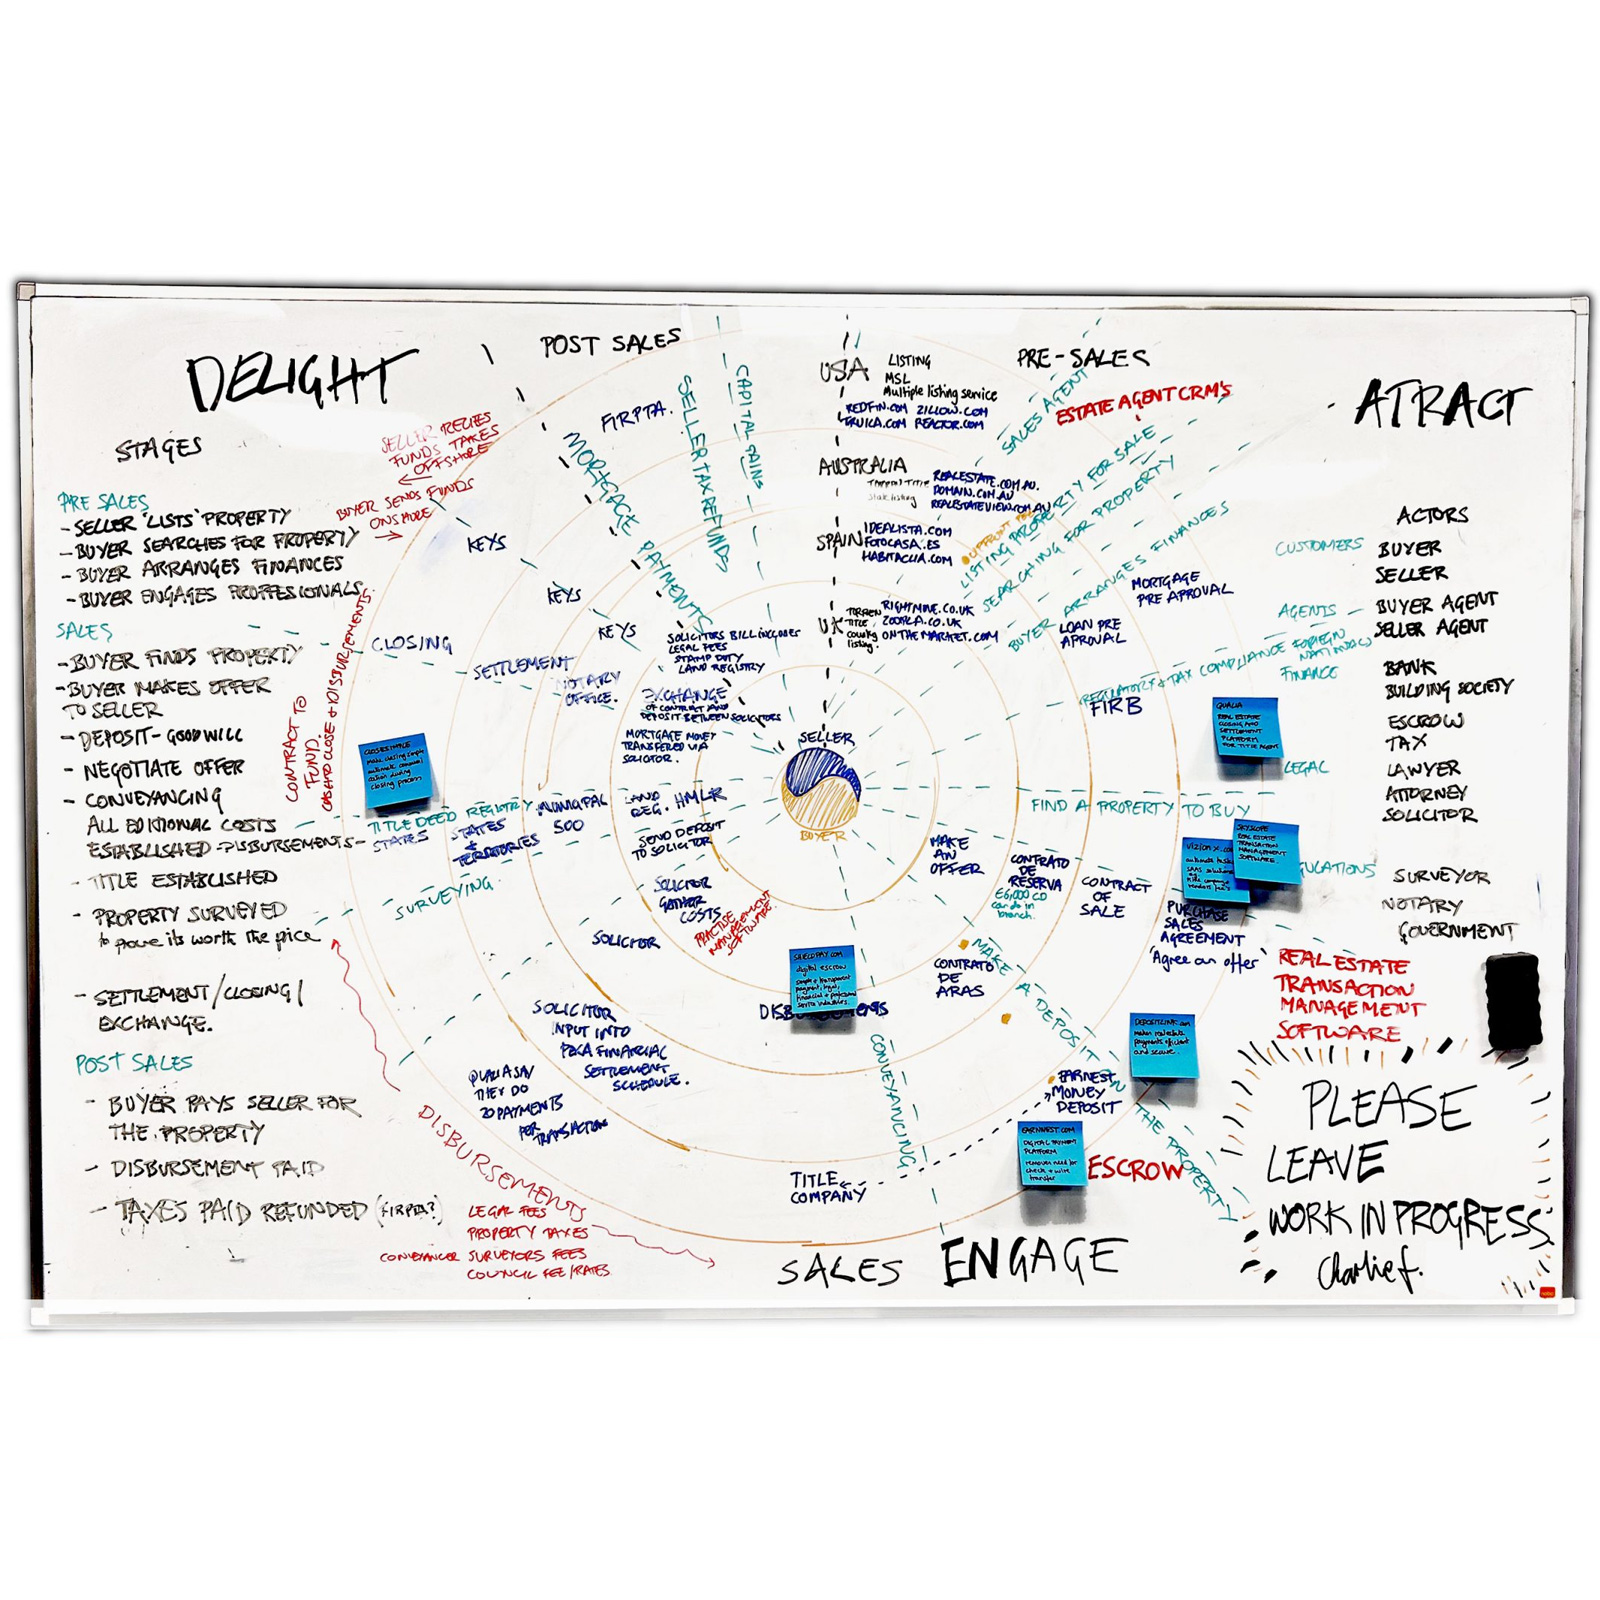 DELIGHT
STAGES
PRE SALES
- SELLER 'LISTS' PROPERTY
- BUYER SEARCHES FOR PROPERTY
- BUYER ARRANGES FINANCES
- BUYER ENGAGES PROFFESSIONALS
SALES
- BUYER FINDS PROPERTY
- BUYER MAKES OFFER
TO SELLER
- DEPOSIT - GOODWILL
- NEGOTIATE OFFER
- CONVEYANCING
ALL EDITIONAL COSTS
ESTABLISHED - DISBURSEMENTS -
- TITLE ESTABLISHED
- PROPERTY SURVEYED
to prove its worth the price
- SETTLEMENT / CLOSING /
EXCHANGE.
POST SALES
- BUYER PAYS SELLER FOR
THE PROPERTY
- DISBURSEMENT PAID
- TAXES PAID REFUNDED (FIRPTA?)
SELLER
FUNDS TAKES
OFFSHORE
BUYER SENDS FUNDS
ONSHORE
CONTRACT TO
FUND.
CASH TO CLOSE + DISBURSEMENTS.
DISBURSEMENTS
LEGAL FEES
PROPERTY TAXES
CONVEYANCER SURVEYORS FEES
COUNCIL FEE/RATES
POST SALES
FIRPTA.
MORTGAGE PAYMENTS
SELLER TAX REFUNDS
CAPITAL GAINS
KEYS
KEYS
KEYS
CLOSING
SETTLEMENT
NOTARY
OFFICE.
SOLICITORS BILL INCLUDES
LEGAL FEES
STAMP DUTY
LAND REGISTRY
EXCHANGE
OF CONTRACT AND
DEPOSIT BETWEEN SOLICITORS
MORTGAGE MONEY
TRANSFERED VIA
SOLICITOR.
make closing simple
closing process
TITLE DEED REGISTRY
STATES
STATES
+
TERRITORIES
MUNICIPAL
500
LAND
REG. HMLR
SEND DEPOSIT
TO SOLICITOR
SURVEYING
SOLICITOR
GATHER
COSTS
PRACTISE
MANAGEMENT
SOFTWARE
SOLICITOR
SOLICITOR
INPUT INTO
PEXA FINANCIAL
SETTLEMENT
SCHEDULE.
QUALIA SAY
THEY DO
20 PAYMENTS
PER
TRANSACTION
SELLER
BUYER
USA
LISTING
MSL
Multiple listing service
REDFIN.COM ZILLOW.COM
TRULIA.COM REACTOR.COM
AUSTRALIA
REALESTATE.COM.AU.
DOMAIN.COM.AU
REALESTATEVIEW.COM.AU
SPAIN
IDEALISTA.COM
FOTOCASA.ES
HABITACLIA.COM
UK
TORREN
TITLE
country
listing.
RIGHTMOVE.CO.UK
ZOOPLA.CO.UK
ONTHEMARKET.COM
PRE-SALES
SALES AGENT
ESTATE AGENT CRM'S
LISTING PROPERTY FOR SALE
SEARCHING FOR PROPERTY
BUYER ARRANGES FINANCES
MORTGAGE
PRE APROVAL
LOAN PRE
APROVAL
REGULATORY + TAX COMPLIANCE FOREIGN
NATIONALS
FIRB
QUALIA
REAL ESTATE
CLOSING AND
SETTLEMENT
PLATFORM
FOR TITLE AGENT
FIND A PROPERTY TO BUY
SKYSLOPE
REAL ESTATE
TRANSACTION
MANAGEMENT
SOFTWARE
MAKE
AN
OFFER
CONTRATO
DE
RESERVA
€6,000 CD
can do in
branch.
CONTRACT
OF
SALE
PURCHASE
SALES
AGREEMENT
'Agree an offer'
CONTRATO
DE
ARAS
MAKE A DEPOSIT ON THE PROPERTY
DEPOSITLINK.com
makes real estate
payments efficient
and secure.
EARNEST
MONEY
DEPOSIT
EARNNEST.COM
DIGITAL PAYMENT
PLATFORM
removes need for
check + wire
transfer
ESCROW
digital escrow
DISBURSEMENTS
CONVEYANCING
TITLE
COMPANY
SALES
ENGAGE
ATRACT
ACTORS
CUSTOMERS
BUYER
SELLER
AGENTS -
BUYER AGENT
SELLER AGENT
FINANCE
BANK
BUILDING SOCIETY
ESCROW
TAX
LEGAL
LAWYER
ATTORNEY
SOLICITOR
SURVEYOR
NOTARY
GOVERNMENT
REAL ESTATE
TRANSACTION
MANAGEMENT
SOFTWARE
PLEASE
LEAVE
WORK IN PROGRESS
Charlie f.
nobo